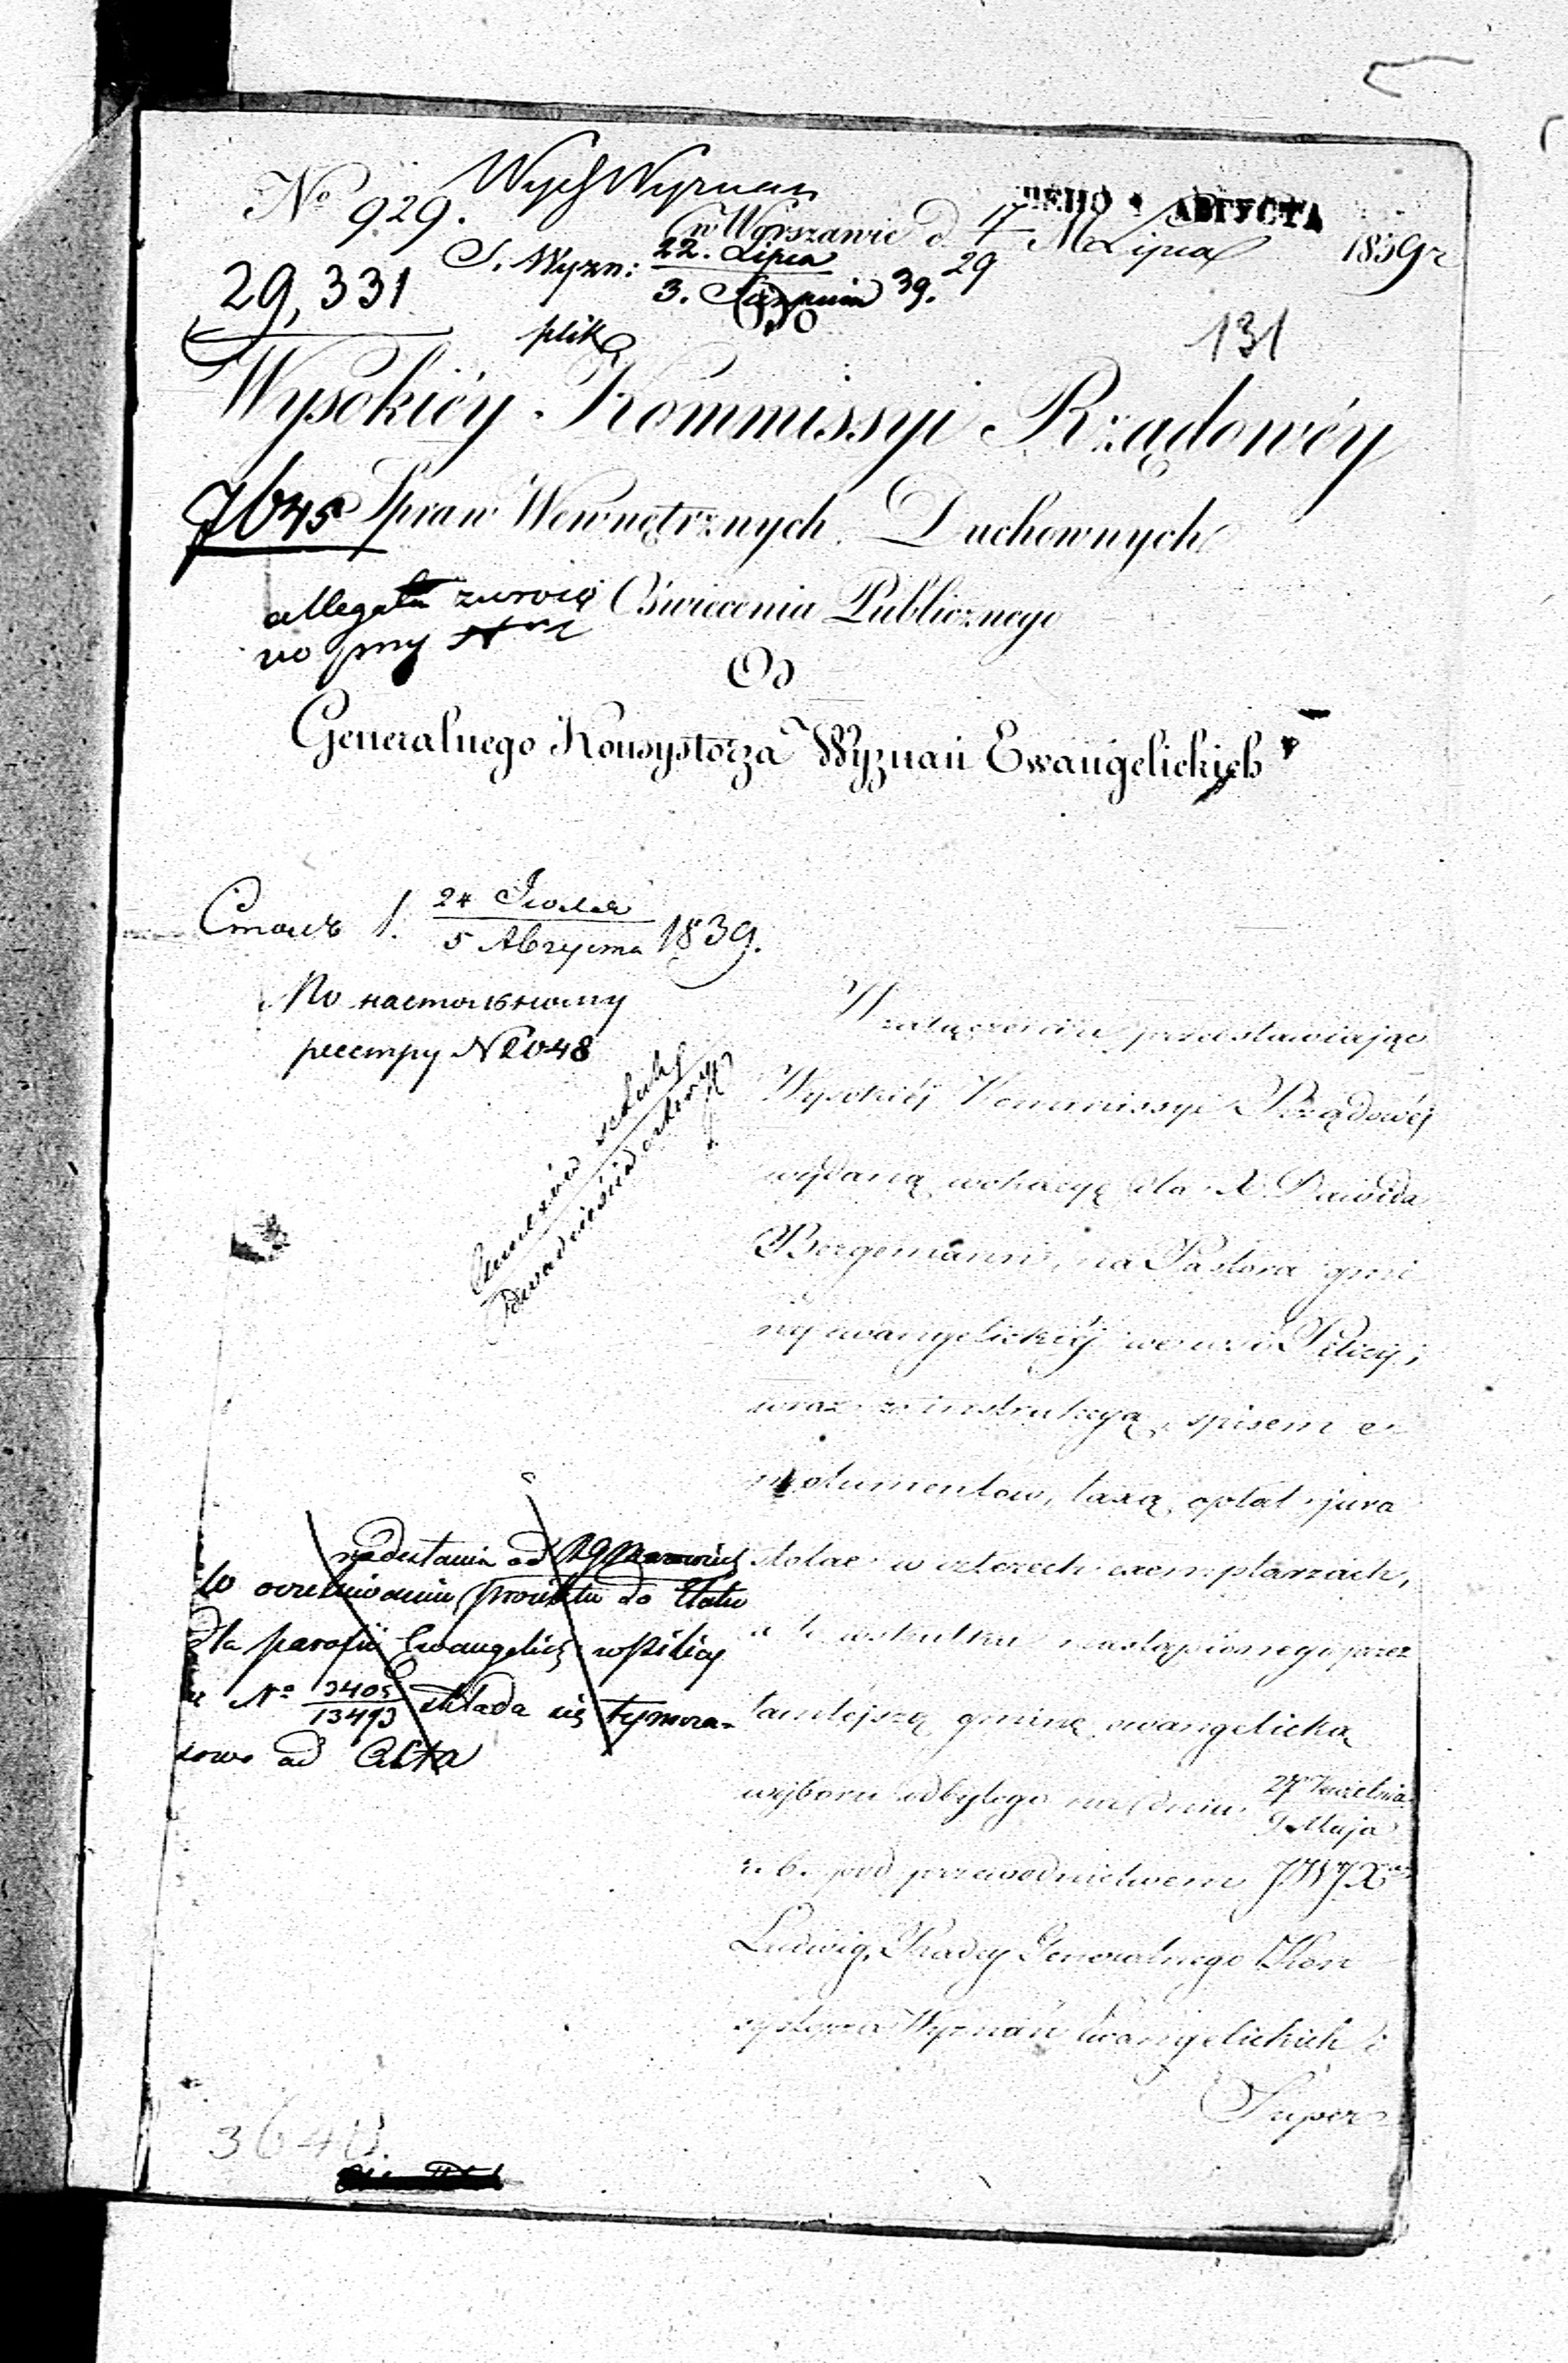 No 929.
Wyzn
ДЕНО АВГУСТА
w Warszawie d. 17/29 M. Lipca 1839 r
S. Wyzn: 22. Lipca / 3. Sierpnia 39.
29,331
plika
Do
131
Wysokiéy Kommissyi Rządowéy
7645 Spraw Wewnętrznych, Duchownych
Oświecenia Publicznego
allegata
przy
Od
Generalnego Konsystorza Wyznań Ewangelickich
Столъ 1. 24 Іюля / 5 Августа 1839.
По настольному
реестру N 2048
W załączeniu przedstawiając
Wysokiéj Kommissyi Rządowéj
wydaną wokacyę dla X. Dawida
Bergemann, na Pastora gmi
ny ewangelickiéj we wsi Pilicy,
wraz z instrukcyą, spisem e-
molumentów, taxą opłat jura
stolae w czterech exemplarzach,
a to w skutku nastąpionego przez
tamtejszą gminę ewangelicką
wyboru odbytego na dniu 27 Kwietnia / 9 Maja
r. b. pod przewodnictwem JWJX
Ludwig, Radcy Generalnego Kon
systorza Wyznań Ewangelickich i
Super
nadesłania od
w oczekiwaniu projektu do Etatu
dla parafii Ewangelick: w Pilicy
No 3405/13493 składa się tymcza-
sowo ad Acta
3640